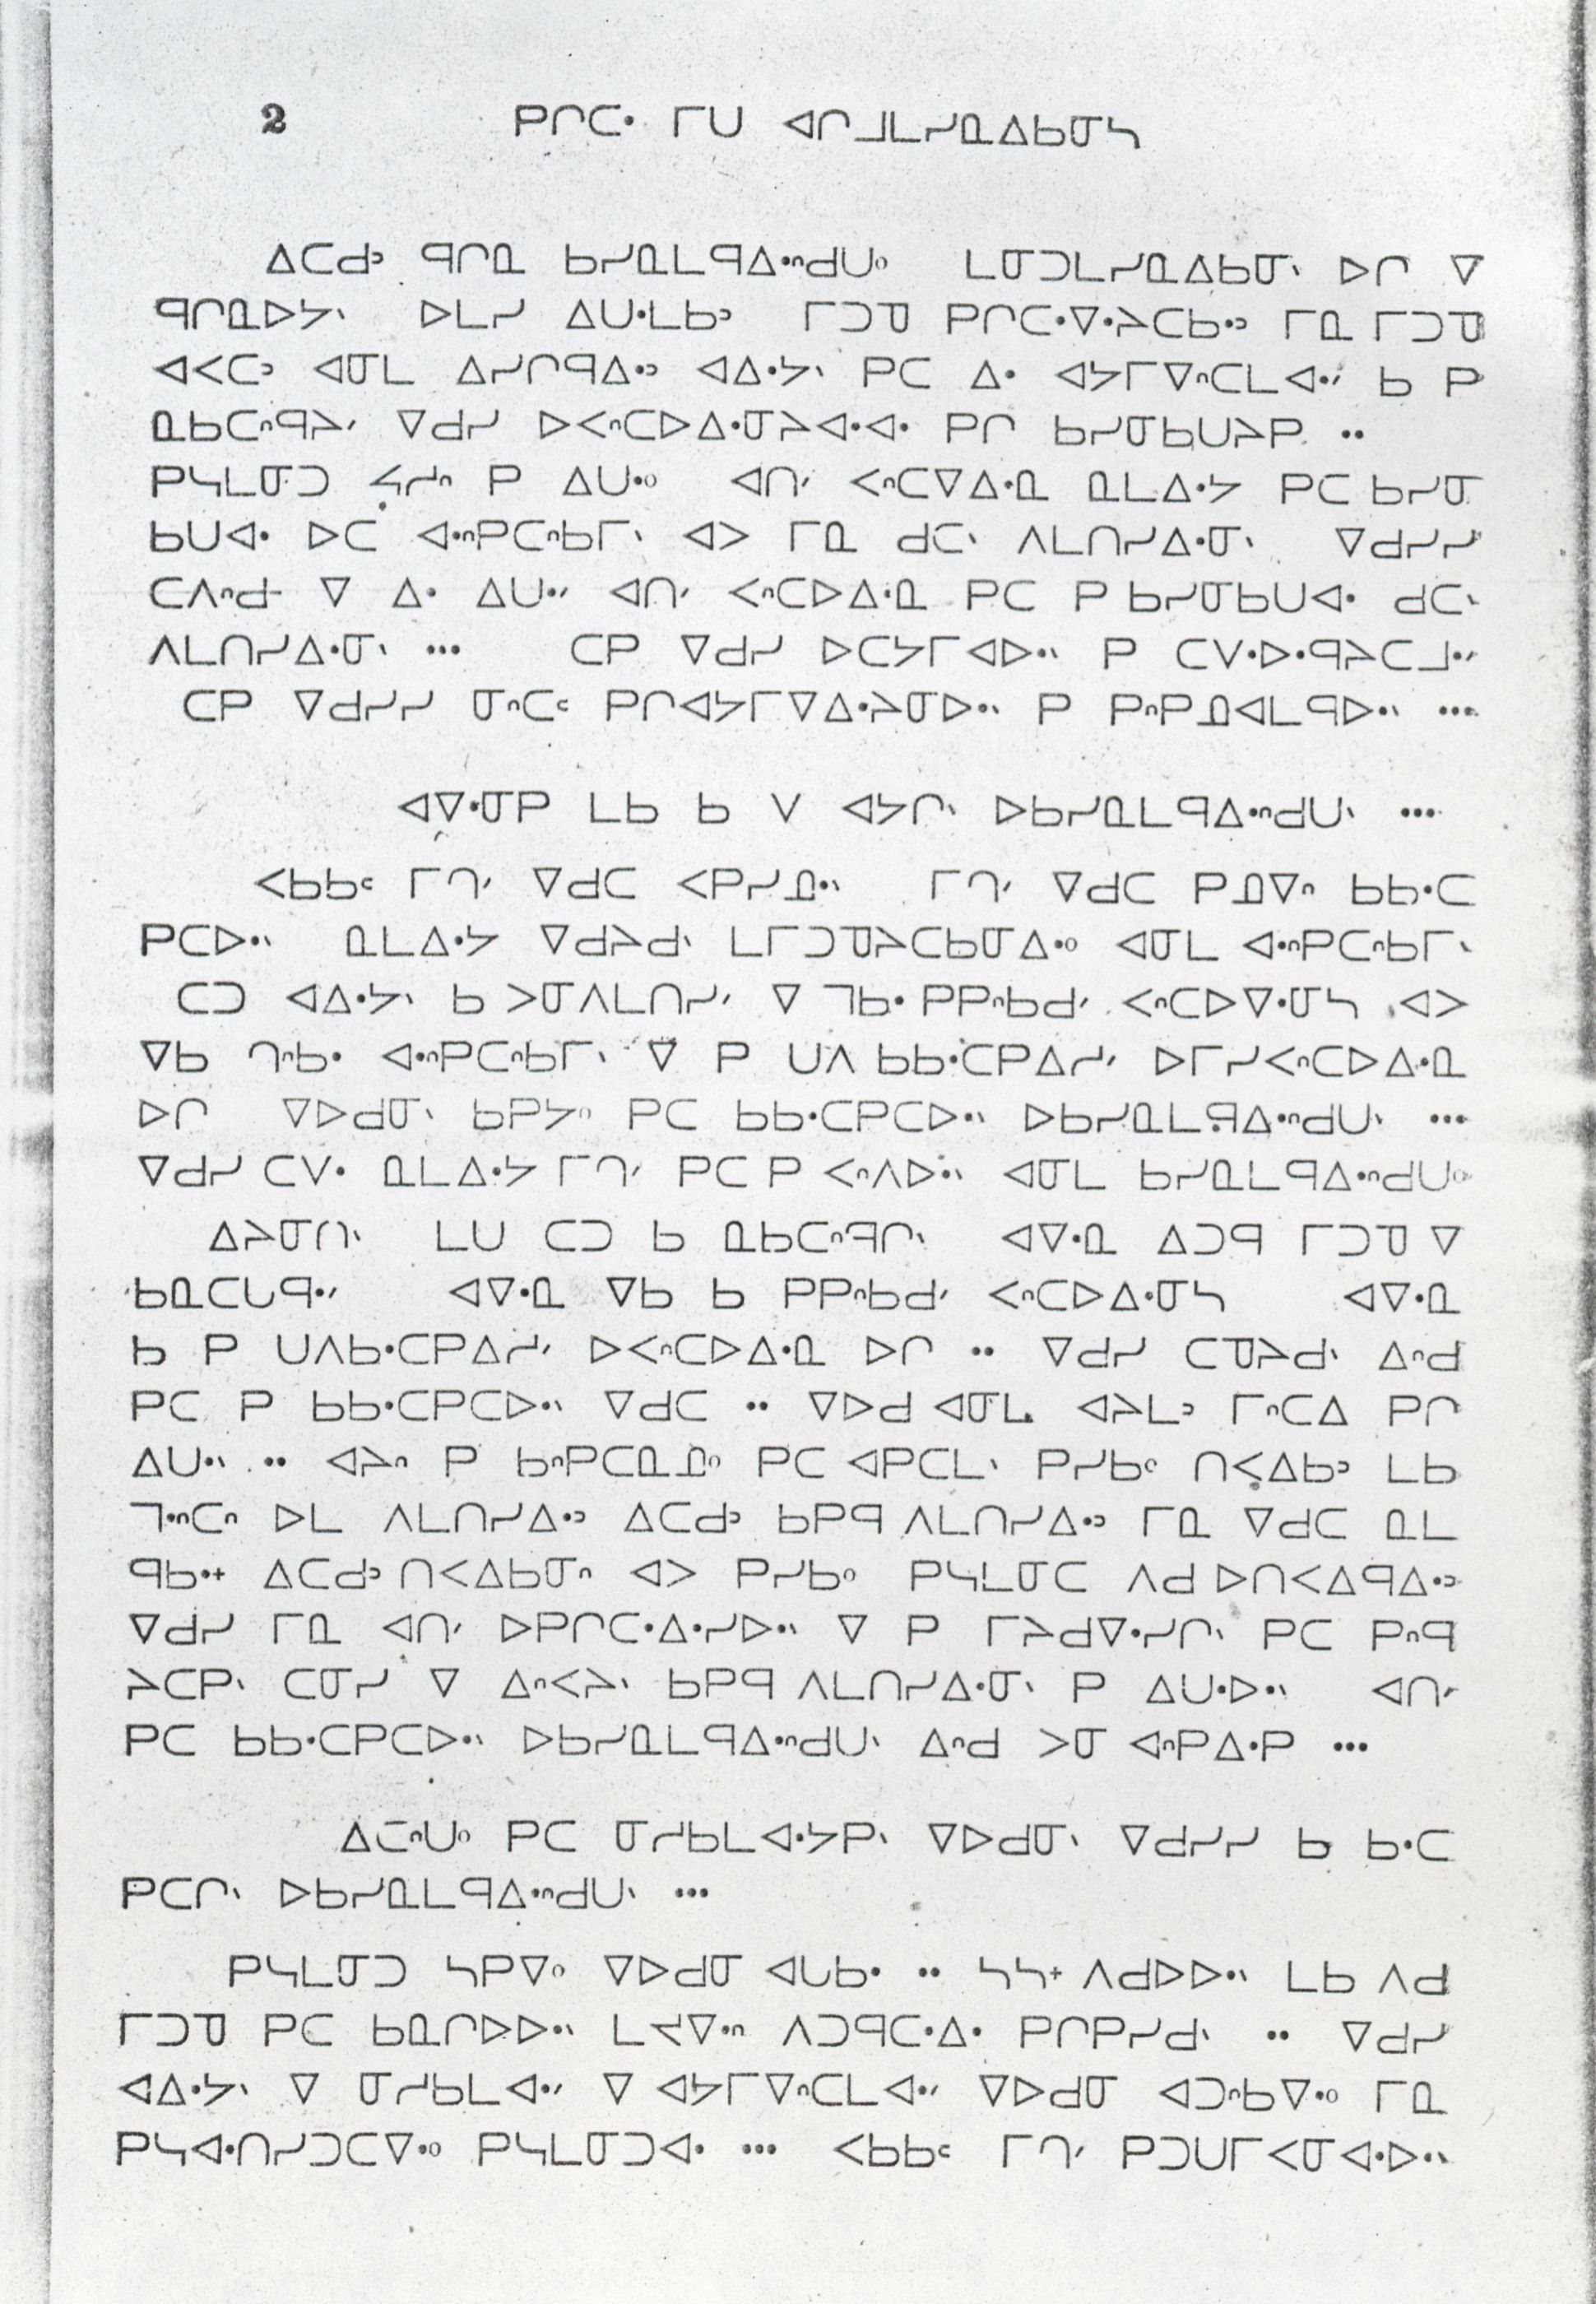 2 ᑭᒋᑕᐧ ᒥᑌ ᐊᒋᒧᒪᓯᓇᐃᑲᓂᓴ
ᐃᑕᑯᐣ ᑫᒋᓇ ᑲᓯᓇᒪᑫᐃᐧᐢᑯᑌᐤ ᒪᓂᑐᒪᓯᓇᐃᑲᓂᐠ ᐅᒋ ᐁ
ᑫᒋᓇᐅᔭᐠ ᐅᒪᓯ ᐃᑌᐧᒪᑲᐣ ᒥᑐᓀ ᑭᒋᑕᐧᐁᐧᔨᑕᑲᐧᐣ ᒥᓇ ᒥᑐᓀ
ᐊᐸᑕᐣ ᐊᓂᒪ ᐃᓯᒋᑫᐃᐧᐣ ᐊᐃᐧᔭᐠ ᑭᑕ ᐃᐧ ᐊᔭᒥᐁᐢᑕᒪᐊᐧᐟ ᑲ ᑭ
ᓇᑲᑕᐢᑫᔨᐟ ᐁᑯᓯ ᐅᐸᐢᑕᐅᐃᐧᓂᔨᐊᐧᐊᐧ ᑭᒋ ᑲᓯᓂᑲᑌᔨᑭ ..
ᑭᓴᒪᓂᑐ ᓵᓯᐢ ᑭ ᐃᑌᐧᐤ ᐊᑎᐟ ᐸᐢᑕᐁᐃᐧᓇ ᓇᒪᐃᐧᔭ ᑭᑕ ᑲᓯᓂ
ᑲᑌᐊᐧ ᐅᑕ ᐊᐧᐢᑭᑕᐢᑲᒥᐠ ᐊᐳ ᒥᓇ ᑯᑕᐠ ᐱᒪᑎᓯᐃᐧᓂᐠ ᐁᑯᓯᓯ
ᑕᐱᐢᑯᐨ ᐁ ᐃᐧ ᐃᑌᐧᐟ ᐊᑎᐟ ᐸᐢᑕᐅᐃᐧᓇ ᑭᑕ ᑭ ᑲᓯᓂᑲᑌᐊᐧ ᑯᑕᐠ
ᐱᒪᑎᓯᐃᐧᓂᐠ ... ᑕᑭ ᐁᑯᓯ ᐅᑕᔭᒥᐊᐅᐧᐠ ᑭ ᑕᐯᐧᐅᐧᑫᔨᑕᒧᐧᐟ
ᑕᑭ ᐁᑯᓯᓯ ᓂᐢᑕᑊ ᑭᒋᐊᔭᒥᐁᐃᐧᔨᓂᐅᐧᐠ ᑭ ᑭᐢᑭᓄᐊᒪᑫᐅᐧᐠ ...
ᐊᐁᐧᓂᑭ ᒪᑲ ᑲ ᐯ ᐊᔭᒋᐠ ᐅᑲᓯᓇᒪᑫᐃᐧᐢᑯᑌᐠ ...
ᐸᑲᑊ ᒥᒋᐟ ᐁᑯᑕ ᐸᑭᓯᓄᐧᐠ ᒥᒋᐟ ᐁᑯᑕ ᑭᓄᐁᐢ ᑲᑲᐧᑕ
ᑭᑕᐅᐧᐠ ᓇᒪᐃᐧᔭ ᐁᑯᔨᑯᐠ ᒪᒥᑐᓀᔨᑕᑲᓂᐃᐧᐤ ᐊᓂᒪ ᐊᐧᐢᑭᑕᐢᑲᒥᐠ
ᑕᑐ ᐊᐃᐧᔭᐠ ᑲ ᐳᓂᐱᒪᑎᓯᐟ ᐁ ᒣᑲᐧ ᑭᑭᐢᑲᑯᐟ ᐸᐢᑕᐅᐁᐧᓂᓴ ᐊᐳ
ᐁᑲ ᒉᐢᑲᐧ ᐊᐧᐢᑭᑕᐢᑲᒥᐠ ᐁ ᑭ ᑌᐱ ᑲᑲᐧᑕᑭᐃᓯᐟ ᐅᒥᓯᐸᐢᑕᐅᐃᐧᓇ
ᐅᒋ ᐁᐅᑯᓂᐠ ᑲᑭᔭᐤ ᑭᑕ ᑲᑲᐧᑕᑭᑕᐅᐧᐠ ᐅᑲᓯᓇᒪᑫᐃᐧᐢᑯᑌᐠ ...
ᐁᑯᓯ ᑕᐯᐧ ᓇᒪᐃᐧᔭ ᒥᒋᐟ ᑭᑕ ᑭ ᐸᐢᐱᐅᐧᐠ ᐊᓂᒪ ᑲᓯᓇᒪᑫᐃᐧᐢᑯᑌᐤ
ᐃᔨᓂᑎᐠ ᒪᑌ ᑕᑐ ᑲ ᓇᑲᑕᐢᑫᒋᐠ ᐊᐁᐧᓇ ᐃᑐᑫ ᒥᑐᓀ ᐁ
ᑲᓇᑕᒐᑫᐧᐟ ᐊᐁᐧᓇ ᐁᑲ ᑲ ᑭᑭᐢᑲᑯᐟ ᐸᐢᑕᐅᐃᐧᓂᓴ ᐊᐁᐧᓇ
ᑲ ᑭ ᑌᐱᑲᐧᑕᑭᐃᓯᐟ ᐅᐸᐢᑕᐅᐃᐧᓇ ᐅᒋ .. ᐁᑯᓯ ᑕᓀᔨᑯᐠ ᐃᐢᑯ
ᑭᑕ ᑭ ᑲᑲᐧᑕᑭᑕᐅᐧᐠ ᐁᑯᑕ .. ᐁᐅᑯ ᐊᓂᒪ ᐊᔨᒪᐣ ᒥᐢᑕᐃ ᑭᒋ
ᐃᑌᐧᐠ .. ᐊᔨᐢ ᑭ ᑲᐢᑭᑕᓇᓄᐤ ᑭᑕ ᐊᑭᑕᒪᐠ ᑭᓯᑲᐤ ᑎᐸᐃᑲᐣ ᒪᑲ
ᒣᐧᐢᑕᐢ ᐅᒪ ᐱᒪᑎᓯᐃᐧᐣ ᐃᑕᑯᐣ ᑲᑭᑫ ᐱᒪᑎᓯᐃᐧᐣ ᒥᓇ ᐁᑯᑕ ᓇᒪ
ᑫᑲᐧᕀ ᐃᑕᑯᐣ ᑎᐸᐃᑲᓂᐢ ᐊᐳ ᑭᓯᑲᐤ ᑭᓴᒪᓂᑕ ᐱᑯ ᐅᑎᐸᐃᑫᐃᐧᐣ
ᐁᑯᓯ ᒥᓇ ᐊᑎᐟ ᐅᑭᒋᑕᐧᐃᐧᓯᐅᐧᐠ ᐁ ᑭ ᒥᔨᑯᐁᐧᓯᒋᐠ ᑭᑕ ᑭᐢᑫ
ᔨᑕᑭᐠ ᑕᓂᓯ ᐁ ᐃᐢᐸᔨᐠ ᑲᑭᑫ ᐱᒪᑎᓯᐃᐧᓂᐠ ᑭ ᐃᑌᐧᐅᐧᐠ ᐊᑎᐟ
ᑭᑕ ᑲᑲᐧᑕᑭᑕᐅᐧᐠ ᐅᑲᓯᓇᒪᑫᐃᐧᐢᑯᑌᐠ ᐃᐢᑯ ᐳᓂ ᐊᐢᑭᐃᐧᑭ ...
ᐃᑕᐢᑌᐤ ᑭᑕ ᓂᓯᑲᒪᐊᐧᔭᑭᐠ ᐁᐅᑯᓂᐠ ᐁᑯᓯᓯ ᑲ ᑲᐧᑕ
ᑭᑕᒋᐠ ᐅᑲᓯᓇᒪᑫᐃᐧᐢᑯᑌᐠ ...
ᑭᓴᒪᓂᑐ ᓴᑭᐁᐤ ᐁᐅᑯᓂ ᐊᒐᑲᐧ .. ᓴᓴᕀ ᐱᑯᐅᐅᐧᐠ ᒪᑲ ᐱᑯ
ᒥᑐᓀ ᑭᑕ ᑲᓇᒋᐅᐅᐧᐠ ᒪᔪᐁᐧᐢ ᐱᑐᑫᑕᐧᐃᐧ ᑭᒋᑭᓯᑯᐠ .. ᐁᑯᓯ
ᐊᐃᐧᔭᐠ ᐁ ᓂᓯᑲᒪᐊᐧᐟ ᐁ ᐊᔭᒥᐁᐢᑕᒪᐊᐧᐟ ᐁᐅᑯᓂ ᐊᑐᐢᑲᐁᐧᐤ ᒥᓇ
ᑭᓴᐊᐧᑎᓯᑐᑕᐁᐧᐤ ᑭᓴᒪᓂᑐᐊᐧ ... ᐸᑲᑊ ᒥᒋᐟ ᑭᑐᑌᒥᐸᓂᐊᐧᐅᐧᐠ